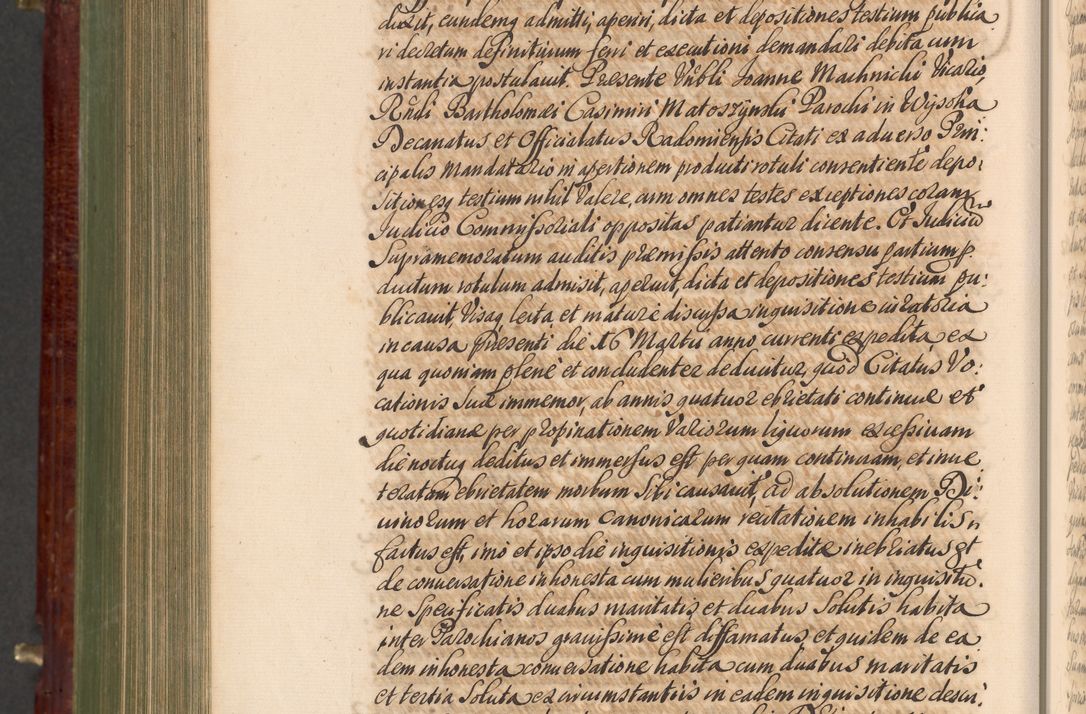 duxit, eundemq admitti, aperiri, dicta et depositiones testium publica
ri decretum definitivum ferri et executioni demandari debita cum
instantia postulavit. Presente Vnbli Joanne Machnicki Vicario,
Rndi Bartholomæi Casimiri Matoszynski Parochi in Wyssoka
Decanatus et Officialatus Radomiensis Citati ex adverso Prin:
cipalis Mandatario in apertionem producti rotuli consentiente depo:
sitionesq testium nihil Valere, cum omnes testes exceptiones coram
Judicio Commissoriali oppositas patiantur dicente. Et Judicium
Supramemoratum auditis præmissis attento consensu partium p
ductum rotulum admisit, aperuit, dicta et depositiones testium pu:
blicavit, Visaq lecta et mature discussa inquisitione iuratoria
in causa præsenti die 16 Martii anno currenti expedita, ex
qua quoniam plenè et concludenter deducitur, quod Citatus Vo:
cationis suæ immemor, ab annis quatuor ebrietati continuæ et
quotidianæ per propinationem Variorum liquorum excessivam
die noctuq deditus et immersus est per quam continuam, et inve
teratam ebrietatem morbum sibi causavit, ad absolutionem Di:
vinorum et horarum Canonicarum recitationem inhabilis
factus est, imo et ipso die inquisitionis expeditæ inebriatus et
de conversatione inhonesta cum mulieribus quatuor in inquisitio:
ne specificatis duabus maritatis et duabus solutis habita
inter Parochianos gravissimè est diffamatus et quidem de ea
dem inhonesta conversatione habita cum duabus maritatis
et tertia soluta ex circumstantiis in eadem inquisitione descri: